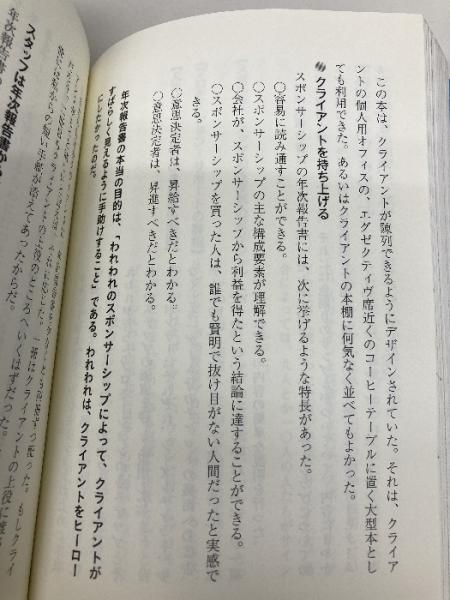 この本は、クライアントが陳列できるようにデザインされていた。それは、クライア
ントの個人用オフィスの、エグゼクティヴ席近くのコーヒーテーブルに置く大型本とし
ても利用できた。あるいはクライアントの本棚に何気なく並べてもよかった。
クライアントを持ち上げる
スポンサーシップの年次報告書には、次に挙げるような特長があった。
○容易に読み通すことができる。
○スポンサーシップの主な構成要素が理解できる。
○会社が、スポンサーシップから利益を得たという結論に達することができる。
○スポンサーシップを買った人は、誰でも賢明で抜け目がない人間だったと実感で
きる。
○意思決定者は、昇給すべきだとわかる。
○意思決定者は、昇進すべきだとわかる。
年次報告書の本当の目的は、「われわれのスポンサーシップによって、クライアントが
すばらしく見えるように手助けすること」である。われわれは、クライアントをヒーロー
にしたかったのだ。
スタッフは年次報告書が